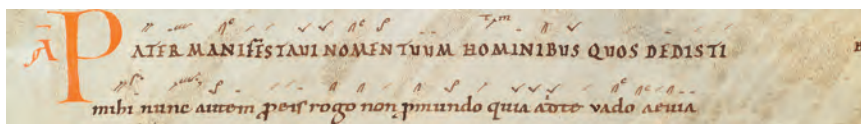 Ā PATER MANIFESTAVI NOMEN TUUM HOMINIBUS QUOS DEDISTI
mihi nunc autem ꝓ eis rogo non ꝓ mundo quia adte vado aevia